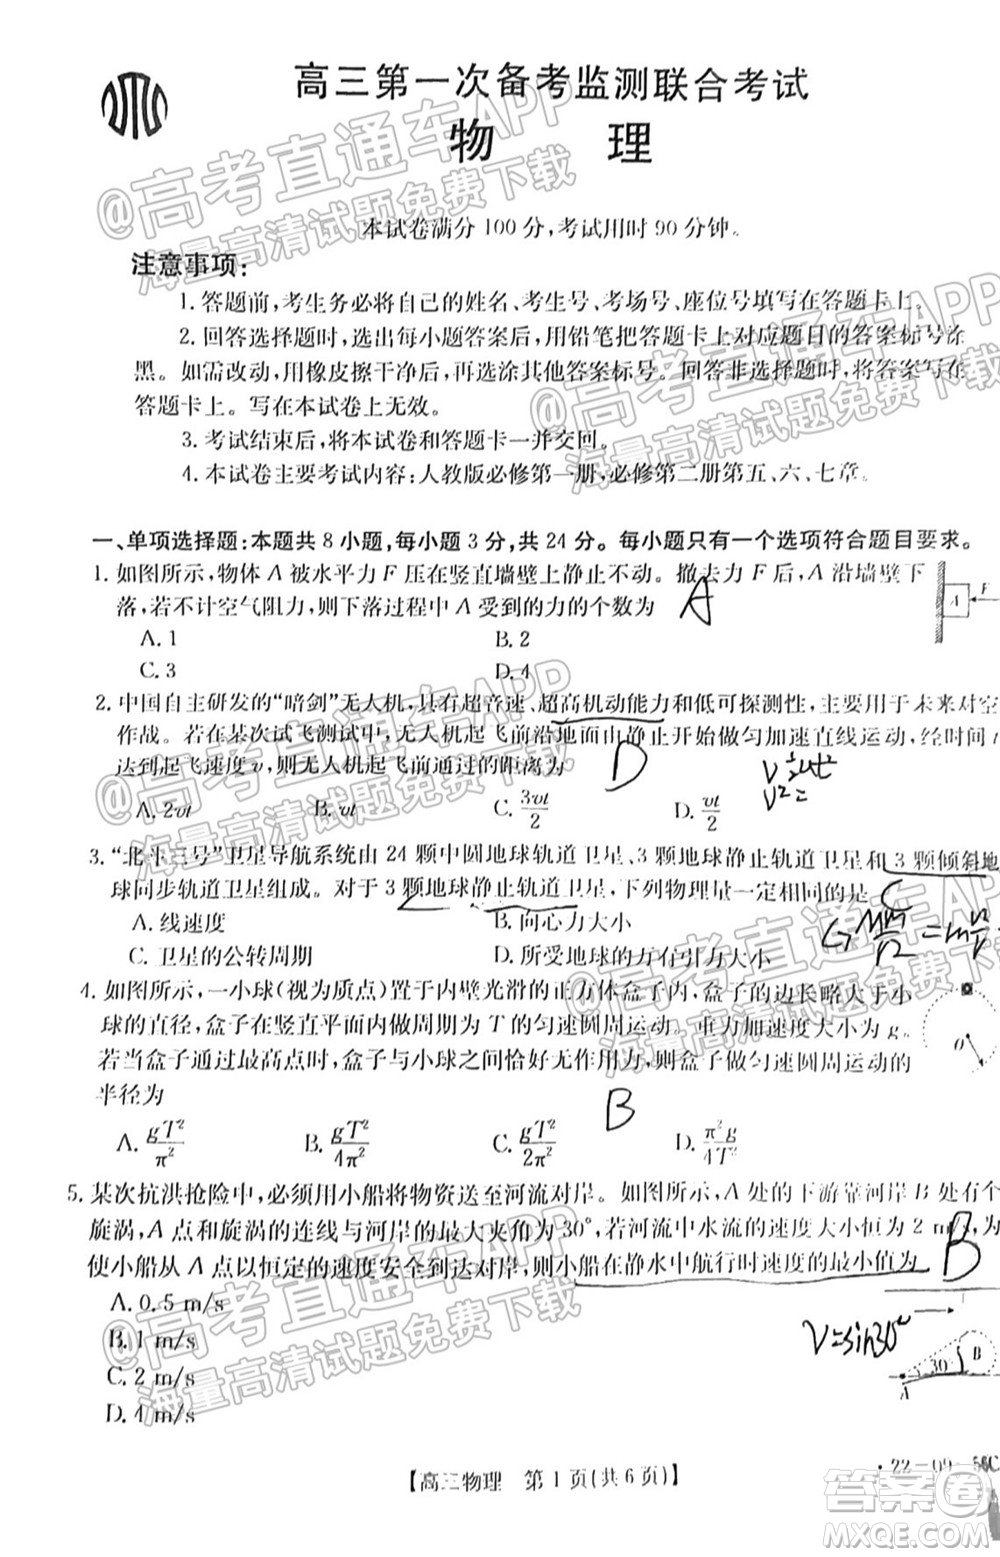 高三第一次备考监测联合考试
物 理
本试卷满分100分,考试用时90分钟。
注意事项:
1. 答题前,考生务必将自己的姓名、考生号、考场号、座位号填写在答题卡上。
2. 回答选择题时,选出每小题答案后,用铅笔把答题卡上对应题目的答案标号涂
黑。如需改动,用橡皮擦干净后,再选涂其他答案标号。回答非选择题时,将答案写在
答题卡上。写在本试卷上无效。
3. 考试结束后,将本试卷和答题卡一并交回。
4. 本试卷主要考试内容:人教版必修第一册,必修第二册第五、六、七章。
一、单项选择题:本题共8小题,每小题3分,共24分。每小题只有一个选项符合题目要求。
1. 如图所示,物体A被水平力F压在竖直墙壁上静止不动。撤去力F后,A沿墙壁下
落,若不计空气阻力,则下落过程中A受到的力的个数为 A
A. 1 B. 2
C. 3 D. 4
A F
2. 中国自主研发的“暗剑”无人机,具有超音速、超高机动能力和低可探测性,主要用于未来对空
作战。若在某次试飞测试中,无人机起飞前沿地面由静止开始做匀加速直线运动,经时间t
达到起飞速度v,则无人机起飞前通过的距离为 D
A. 2vt B. vt C. 3vt/2 D. vt/2
V²=
3. “北斗三号”卫星导航系统由24颗中圆地球轨道卫星、3颗地球静止轨道卫星和3颗倾斜地
球同步轨道卫星组成。对于3颗地球静止轨道卫星,下列物理量一定相同的是 C
A. 线速度 B. 向心力大小
C. 卫星的公转周期 D. 所受地球的万有引力大小
4. 如图所示,一小球(视为质点)置于内壁光滑的正方体盒子内,盒子的边长略大于小
球的直径,盒子在竖直平面内做周期为T的匀速圆周运动。重力加速度大小为g。
若当盒子运动到最高点时,盒子与小球之间恰好无作用力,则盒子做匀速圆周运动的
半径为 B
O
A. gT²/π² B. gT²/4π² C. gT²/2π² D. π²g/4T²
5. 某次抗洪抢险中,必须用小船将物资送至河流对岸。如图所示,A处的下游靠河岸B处有个
旋涡,A点和旋涡的连线与河岸的最大夹角为30°,若河流中水流的速度大小恒为2 m/s,为
使小船从A点以恒定的速度安全到达对岸,则小船在静水中航行时速度的最小值为 B
A. 0.5 m/s
B. 1 m/s
C. 2 m/s
D. 4 m/s
V=sin30°
30 B
A
【高三物理 第1页(共6页)】
·22-09-56C
@高考直通车APP
海量高清试题免费下载
@高考直通车APP
海量高清试题免费下载
@高考直通车APP
海量高清试题免费下载
@高考直通车APP
海量高清试题免费下载
@高考直通车APP
海量高清试题免费下载
@高考直通车APP
海量高清试题免费下载
答案圈
MXQE.COM